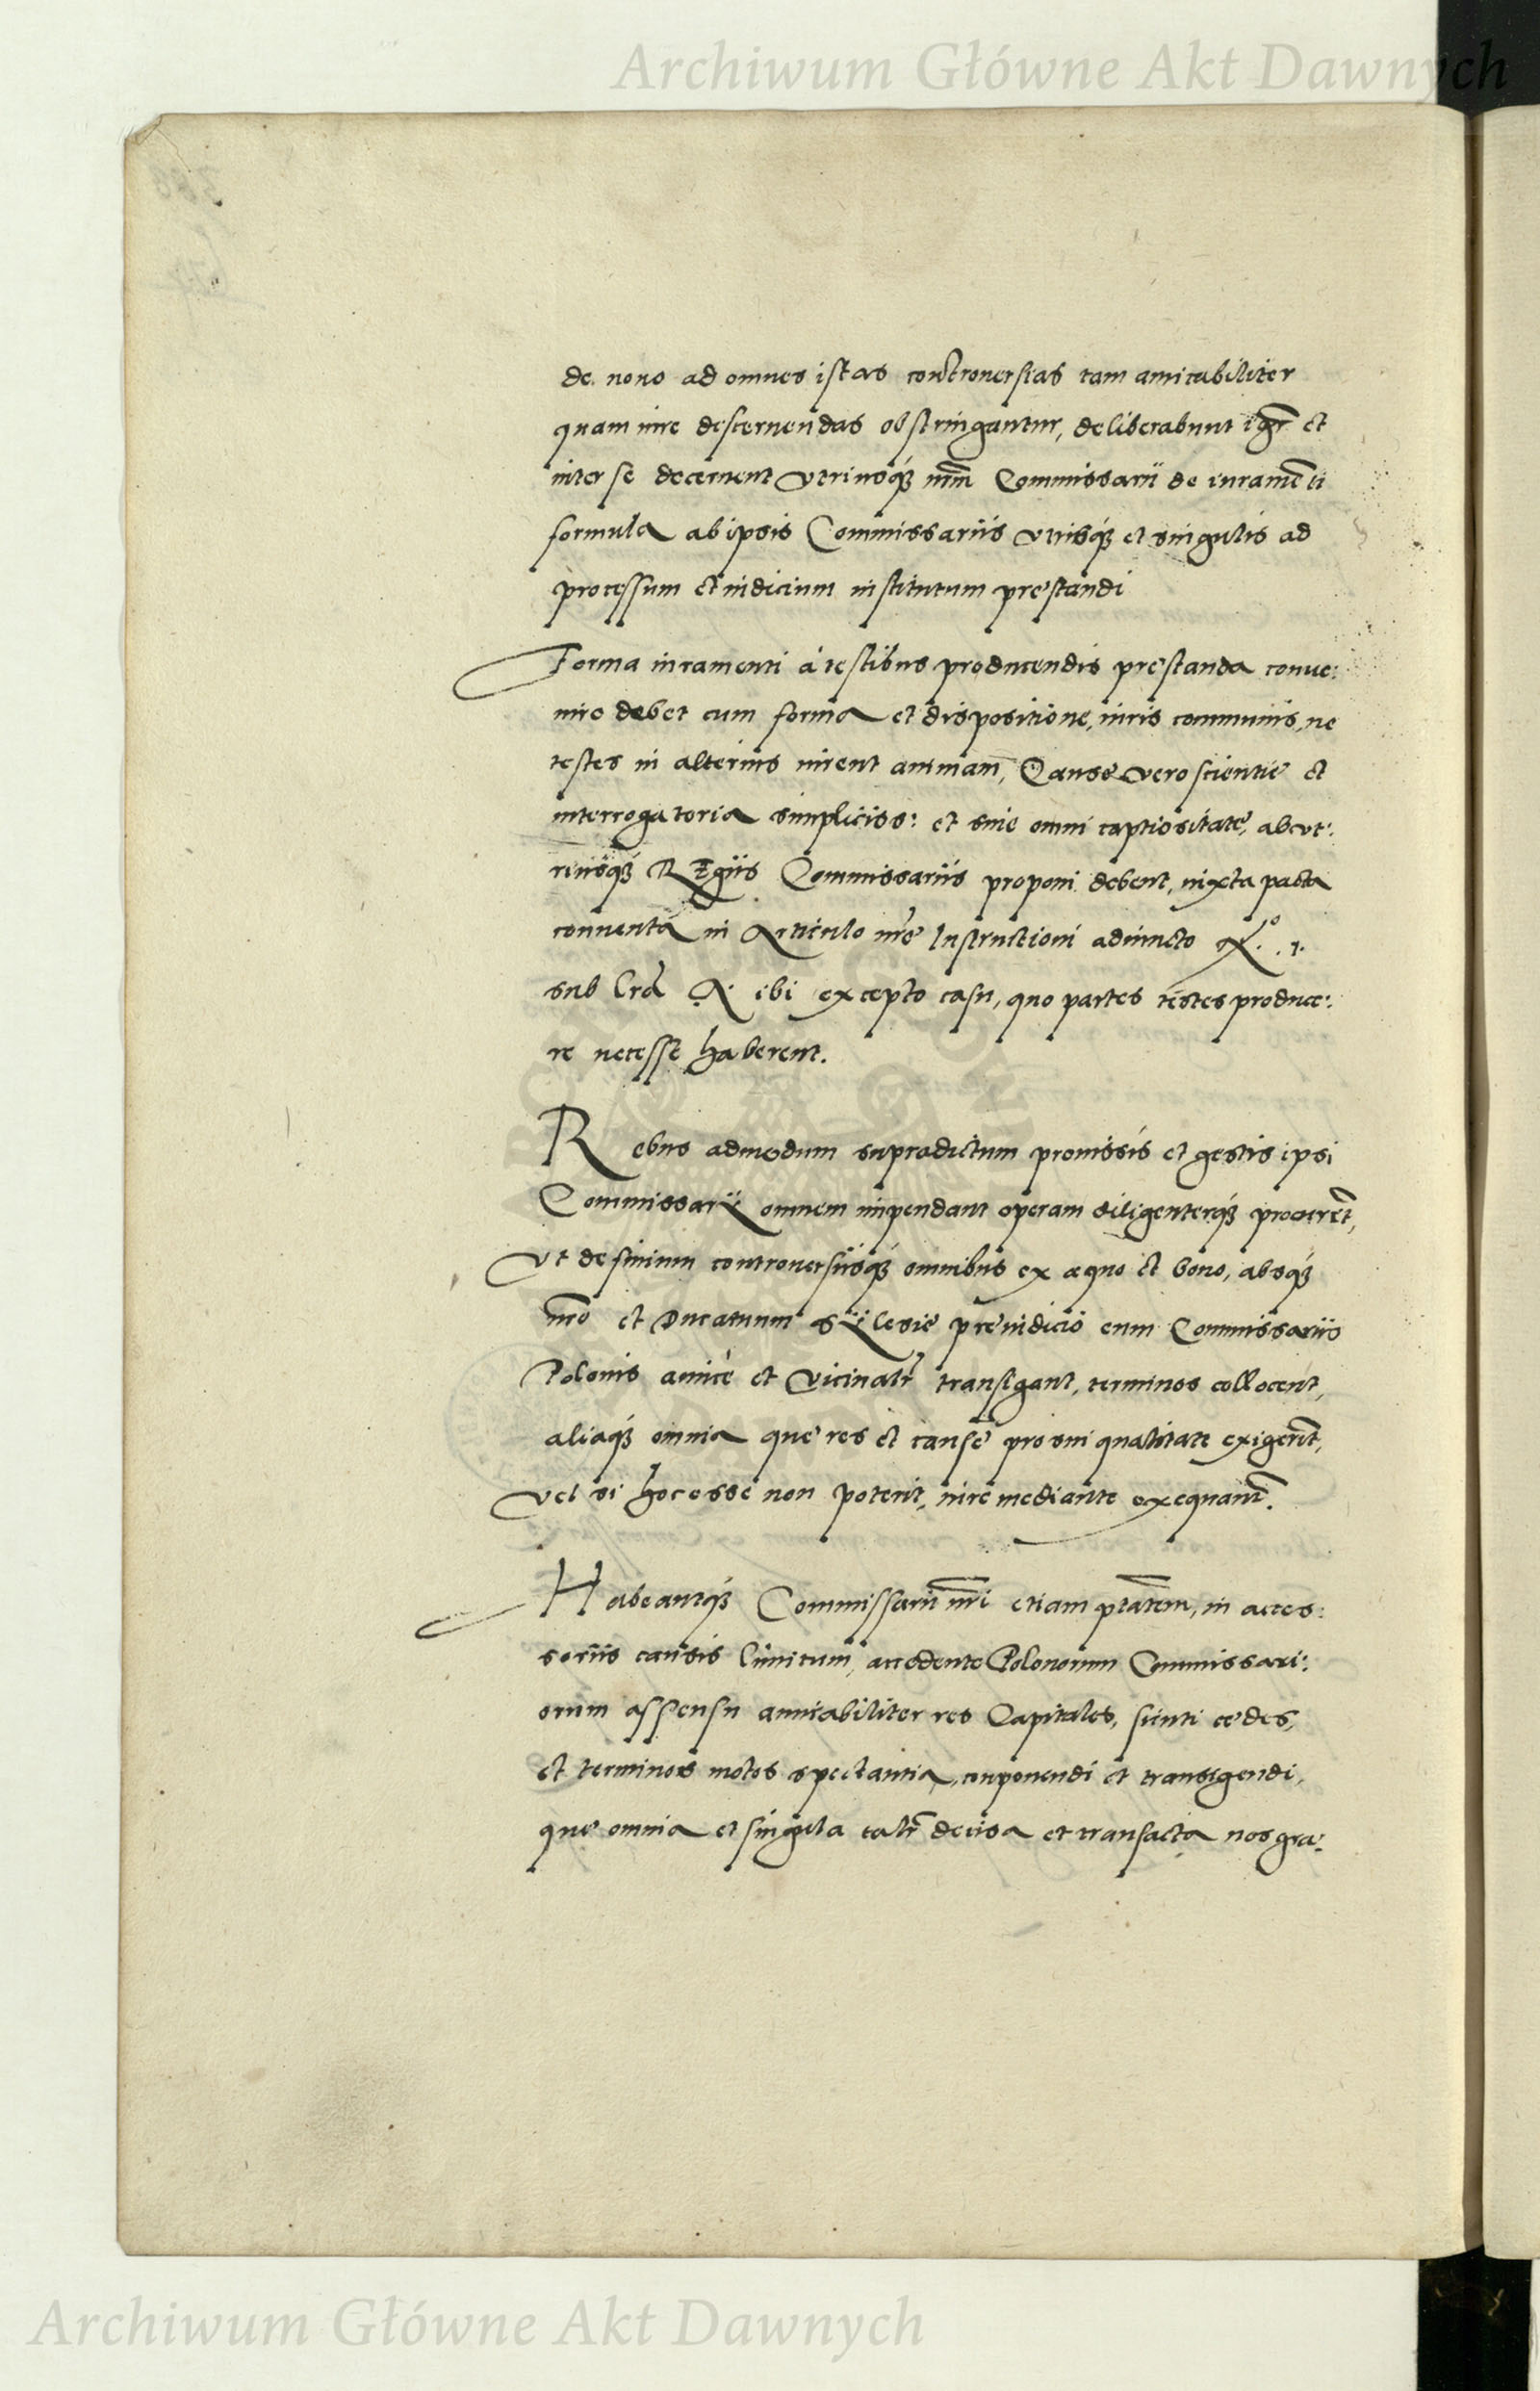 Archiwum Główne Akt Dawnych
de nouo ad omnes istas controuersias tam amicabiliter
quam iure descernendas obstringantur, deliberabunt igr̃ et
inter se decernent vtrinsq₃ nr̃m Commissarii de iuramẽti
formula ab ipsis Commissariis vtrisq₃ et singulis ad
processum et iudicium institutum prestandi
Forma iuramenti à testibus producendis prestanda conue:
nire debet cum forma et dispositione iuris communis, ne
testes in alterius iurent animam, Causę vero scientię et
interrogatoria simpliciss: et sine omni captiositate, ab vt:
riusq₃ Regiis Commissariis proponi debent, iuxta pacta
conuenta in Articulo nr̃e Instructioni adiuncto
sub lr̃a A. ibi excepto casu, quo partes testes produce:
re necesse haberent.
Rebus admodum supradictum promissis et gestis ipsi
Commissarij omnem impendant operam diligenterq₃ procurẽt,
Vt de finium controuersiisq₃ omnibus ex aequo et bono, absq₃
nr̃o et Ducatuum Sÿlesie preiudicio cum Commissariis
Polonis amicè et vicinalr̃ transigant, terminos collocent,
aliaq₃ omnia quę res et causę pro sui qualitate exigerẽt,
vel si hoc esse non poterit, iure mediante exequant̃.
Habeantq₃ Commissarii nr̃i etiam ptãtem, in acces:
soriis causis limitum, accedente Polonorum Commissari:
orum assensu amicabiliter res Capitales, sunti cedes,
et terminos motos spectantia, componendi et transigendi,
quę omnia et singula talr̃ decisa et transacta nos gra:
Archiwum Główne Akt Dawnych